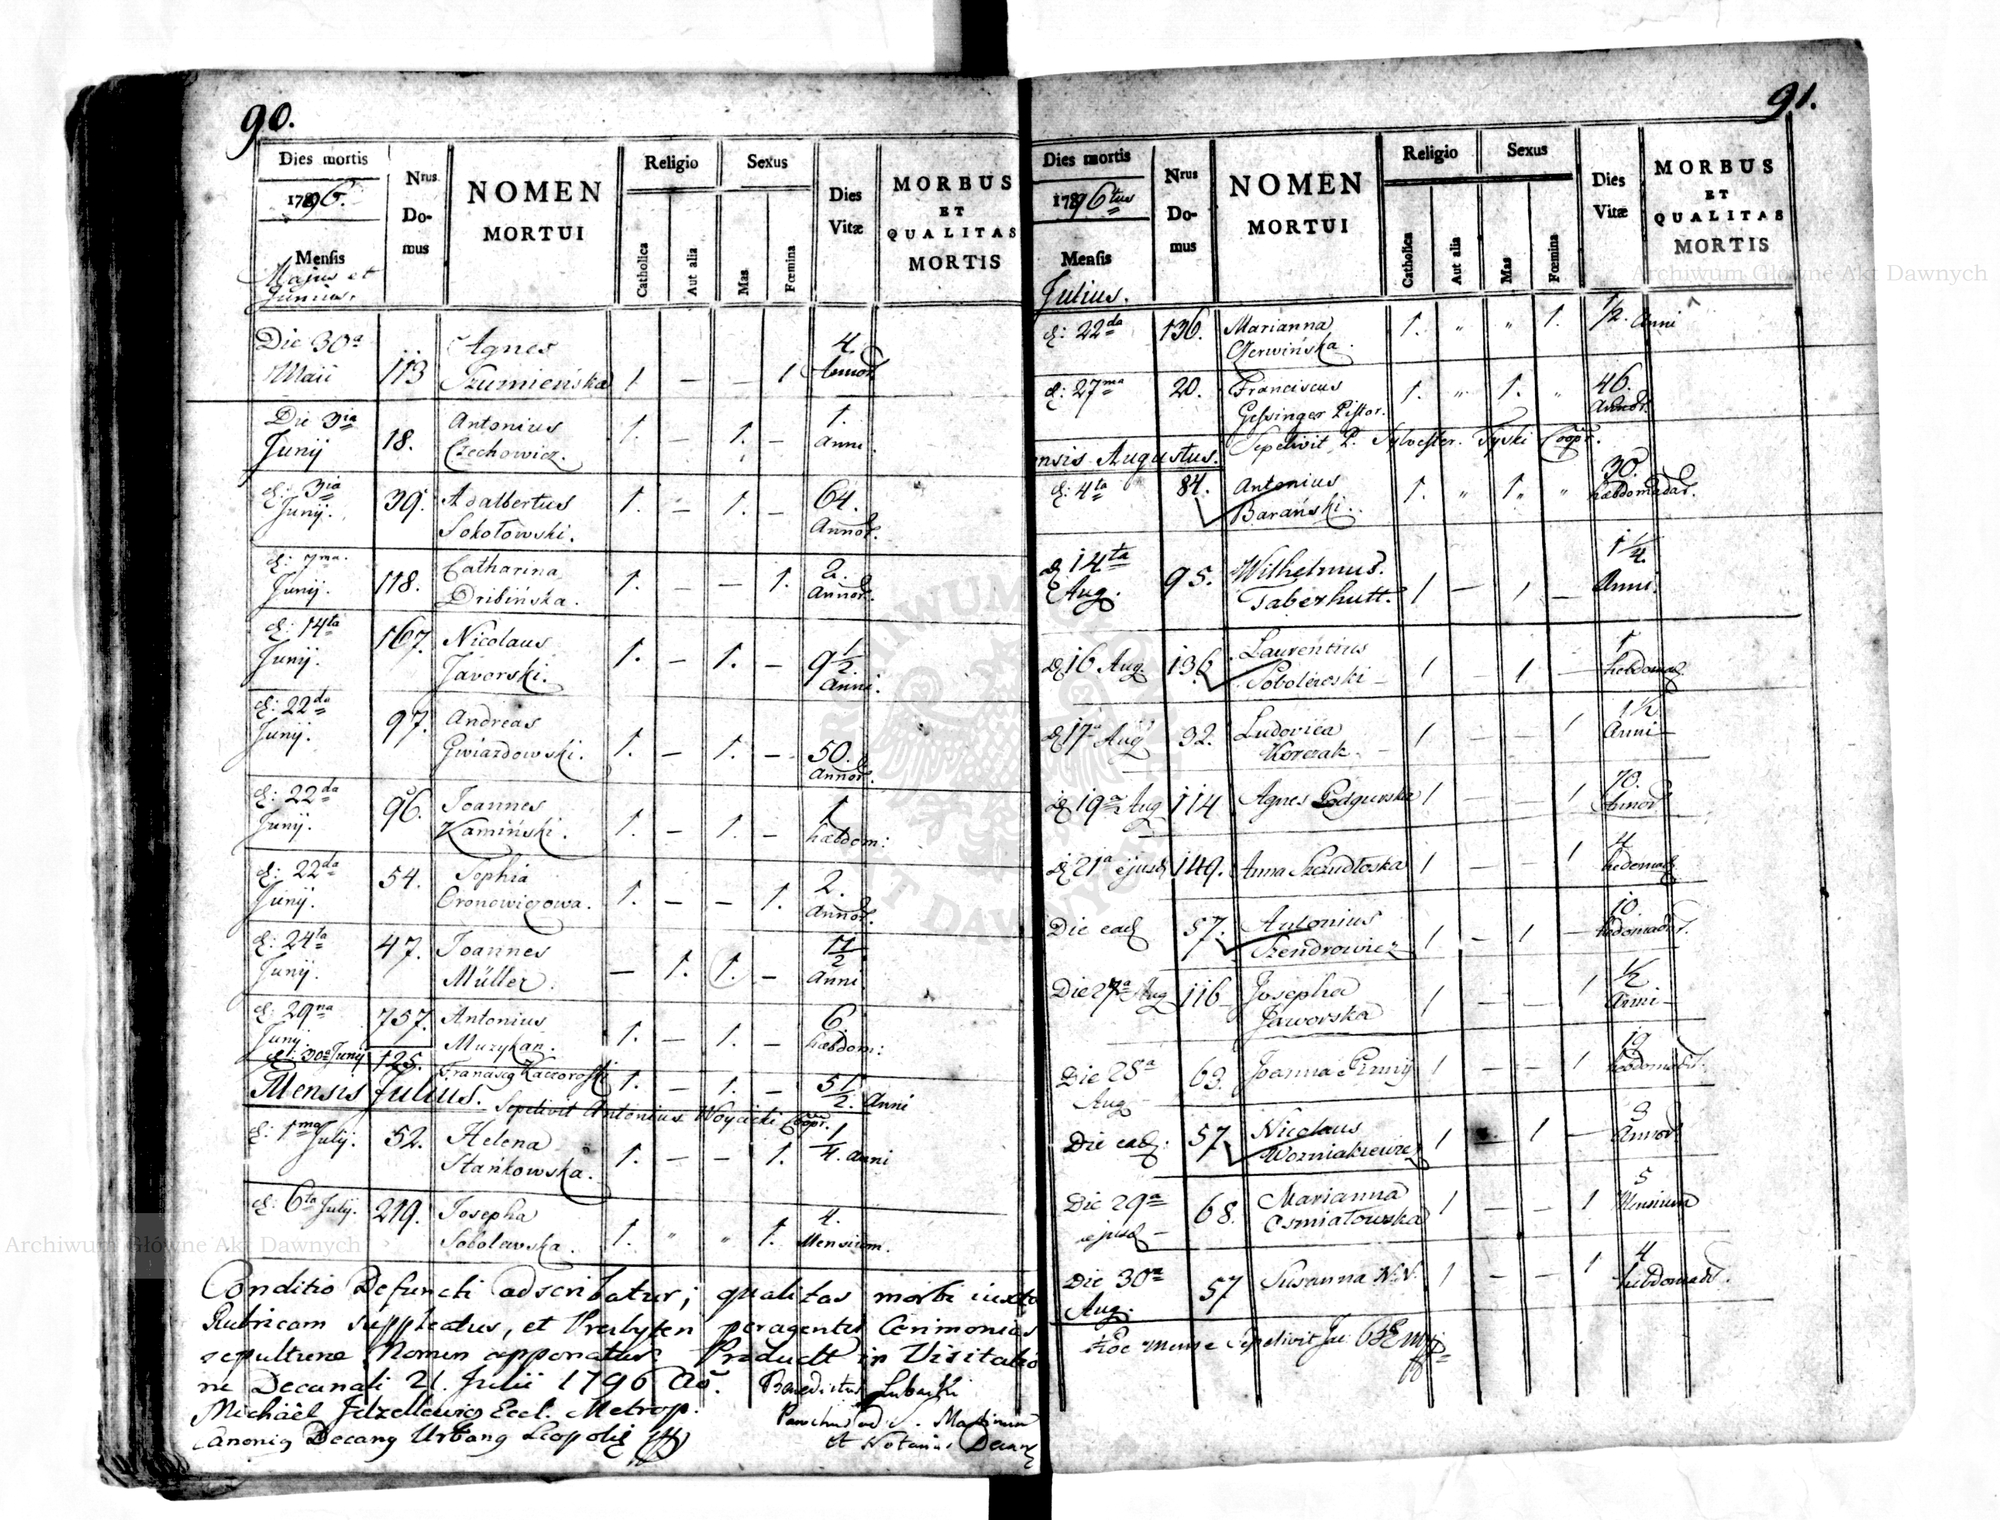 90.
Dies mortis
1796.
Mensis
Majus et
Junius.
Nrus
Do-
mus
NOMEN
MORTUI
Religio
Catholica
Aut alia
Sexus
Mas
Fœmina
Dies
Vitæ
MORBUS
ET
QUALITAS
MORTIS
Die 30a Maii 113 Agnes Szumieńska 1 – – 1 4 Annor.
Die 3ia Junij 18. Antonius Czechowicz. 1. – 1. – 1. Anni.
d: 3ia Junij. 39. Adalbertus Sokołowski. 1. – 1. – 64. Annor.
d: 7ma. Junij. 118. Catharina Dribińska. 1. – – 1. 2. Annor.
d: 14ta Junij. 167. Nicolaus Javorski. 1. – 1. – 9 1/2. Anni.
d: 22da Junij. 97. Andreas Gwiazdowski. 1. – 1. – 50. Annor.
d: 22da Junij. 96. Joannes Kamiński. 1. – 1. – 1 hæbdom:
d: 22da Junij. 54. Sophia Cronowiczowa. 1. – – 1. 2. Annor.
d: 24ta Junij. 47. Joannes Müller. – 1. 1. – 1 1/2 Anni
d: 29na Junij 757. Antonius Muzykan. 1. – 1. – 6 hæbdom:
d: 30a Junij 125. Francisq Kaczoroski 1. – 1. – 5 1/2. Anni
Mensis Julius. Sepelivit Antonius Woycicki Coopr.
d: 1ma July. 52. Helena Stańkowska. 1. – – 1. 1/4. Anni
d: 6ta July. 219. Josepha Sobolewska. 1. " " 1. 4. Mensium.
Conditio Defuncti adscribatur; qualitas morbi iuxta
Rubricam suppleatur, et Presbyteri peragentis Cerimonias
sepulturæ Nomen apponatur. Product in Visitatio
ne Decanali 21. Julii 1796 Ao.
Michäel Eccl. Metrop.
Canoniq Decanq Urbanq Leopoliẽ
Benedictus Lubaski
ad S. Martinum
et Notarius Decan
91.
Dies mortis
1796tus
Mensis
Julius.
Nrus
Do-
mus
NOMEN
MORTUI
Religio
Catholica
Aut alia
Sexus
Mas
Fœmina
Dies
Vitæ
MORBUS
ET
QUALITAS
MORTIS
d: 22da 136. Marianna Czerwińska. 1. " " 1. 1/2. Anni
d: 27ma 20. Franciscus Gessinger Pistor. 1. " 1. " 46. Annor.
Sepelivit P. Sylvester Tyski Coopr.
nsis Augustus.
d: 4ta 84. Antonius Barański. 1. " 1. " 30. hæbdomadar.
d 14ta Aug. 95. Wilhelmus Taberhutt. 1 – 1 – 1 1/4. Anni.
d 16 Aug. 136. Laurentius Soboleoski – 1 – 1 – 1 hebdomad
d 17a Aug 32. Ludovica Korczak – 1 – – 1 1 1/2 Anni –
d 19a Aug 114 Agnes Podgurska 1 – – 1 70. Annor
d 21a ejusd 149. Anna Szczudłoska 1 – – 1 4 hebomad
Die ead 57. Antonius Szendrowicz 1 – 1 – 10. hebdomadar.
Die 27a Aug 116 Josepha Jaworska 1 – – 1 1/2 Anni –
Die 28a Aug 63. Joanna Pinnij 1 – – 1 19 hebdomadar.
Die ead: 57. Nicolaus Wozniakiewicz 1 – 1 – 3 Annor
Die 29a ejusd – 68. Marianna Osmiałowska 1 – – 1 5 Mensium
Die 30a Aug. 57 Susanna N.N. 1 – – 1 4 hebdomadar.
Hoc mense Sepelivit
Archiwum Główne Akt Dawnych
Archiwum Główne Akt Dawnych
ARCHIWUM GŁÓWNE AKT DAWNYCH